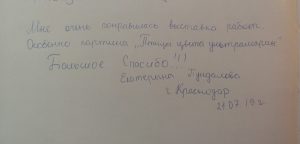 Мне очень понравилась выставка работ.
Особенно картина „Птицы цвета ультрамарин"
Большое Спасибо!!!
Екатерина
г. Краснодар
21.07.19 г.